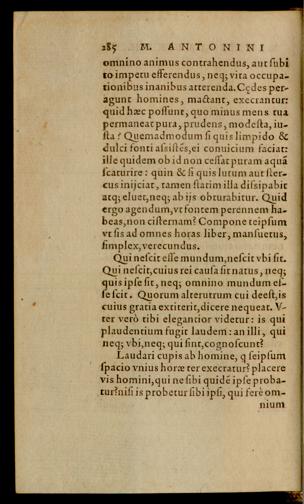 285 M. ANTONINI
omnino animus contrahendus, aut subi
to impetu efferendus, neq; vita occupa-
tionibus inanibus atterenda. Cędes per-
agunt homines, mactant, execrantur:
quid hæc possunt, quo minus mens tua
permaneat pura, prudens, modesta, iu-
sta? Quemadmodum si quis limpido &
dulci fonti assistẽs, ei conuicium faciat:
ille quidem ob id non cessat puram aquã
scaturire: quin & si quis lutum aut ster-
cus inijciat, tamen statim illa dissipabit
atq; eluet, neq; ab ijs obturabitur. Quid
ergo agendum, vt fontem perennem ha-
beas, non cisternam? Compone teipsum
vt sis ad omnes horas liber, mansuetus,
simplex, verecundus.
Qui nescit esse mundum, nescit vbi sit.
Qui nescit, cuius rei causa sit natus, neq;
quis ipse sit, neq; omnino mundum es-
se scit. Quorum alterutrum cui deest, is
cuius gratia extiterit, dicere nequeat. V-
ter verò tibi elegantior videtur: is qui
plaudentium fugit laudem: an illi, qui
neq; vbi, neq; qui sint, cognoscunt?
Laudari cupis ab homine, q seipsum
spacio vnius horæ ter execratur? placere
vis homini, qui ne sibi quidẽ ipse proba-
tur? nisi is probetur sibi ipsi, qui ferè om-
nium